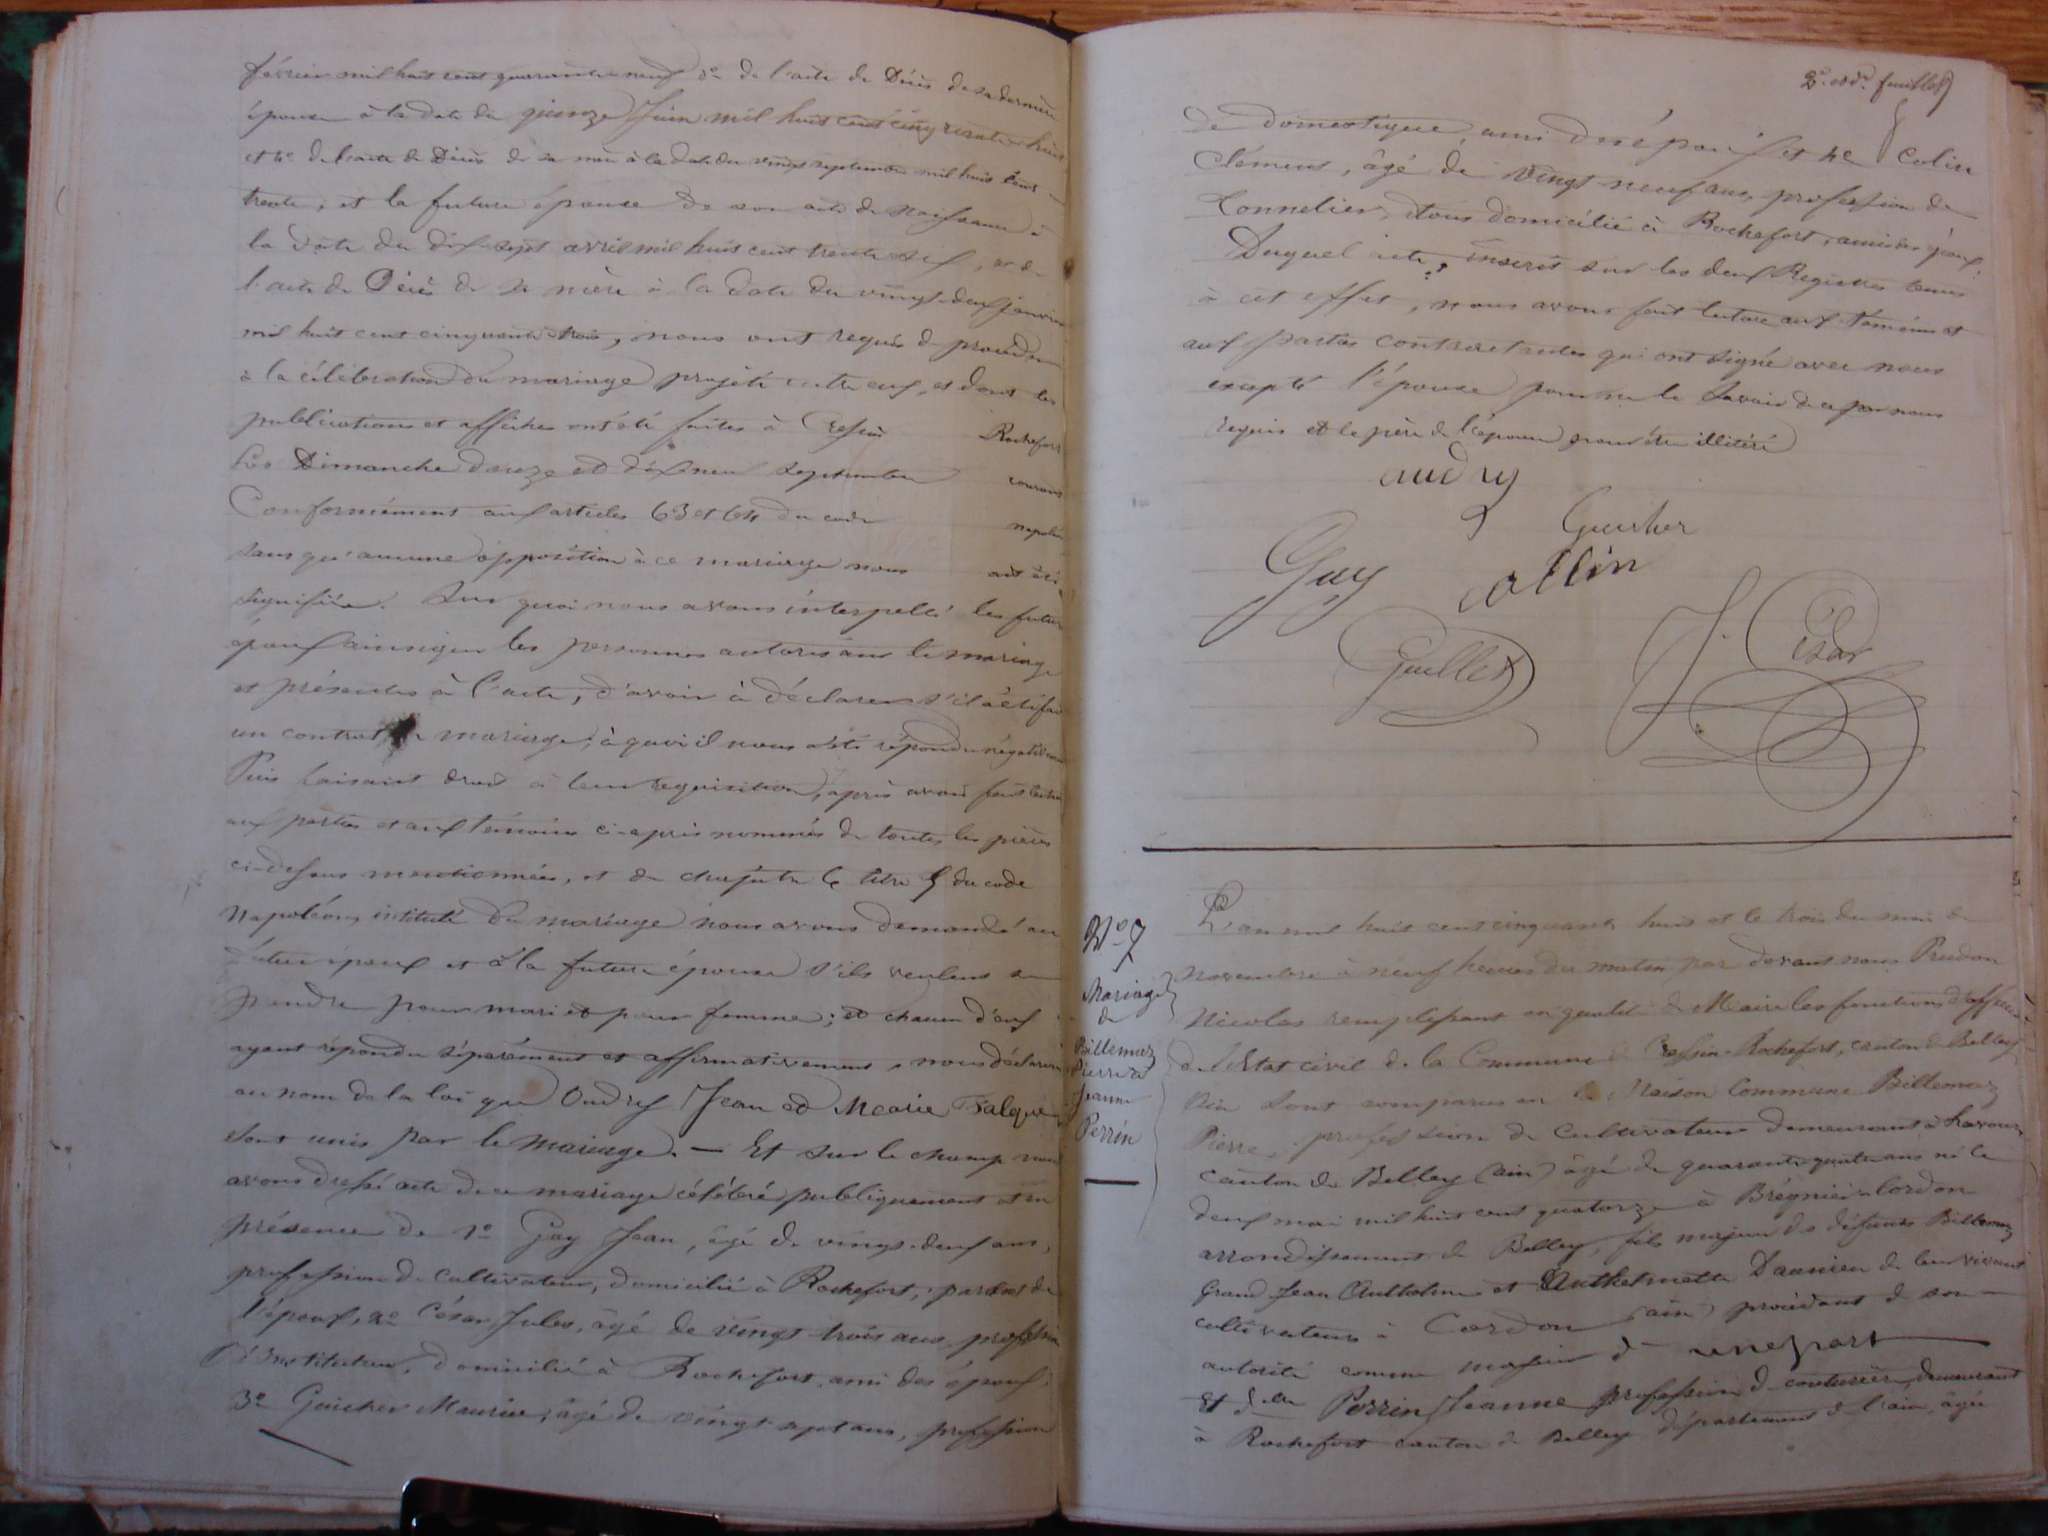 février mil huit cent quarante neuf 3o de l'acte de Décès de sa dernière
épouse à la date du quinze Juin mil huit cent cinquante huit
et 4o de l'acte de Décès de sa mère à la date du vingt septembre mil huit cent
trente, et la future épouse de son acte de Naissance à
la date du dix sept avril mil huit cent trente six, et de
l'acte de Décès de sa mère à la date du vingt deux janvier
mil huit cent cinquante trois, nous ont requis de procéder
à la célébration du mariage projeté entre eux, et dont les
publications et affiches ont été faites à Cressin Rochefort
Les Dimanche douze et dix neuf septembre courant
Conformément aux articles 63 et 64 du code napoléon
sans qu'aucune opposition à ce mariage nous ait été
signifiée. Sur quoi nous avons interpellé les futurs
époux ainsi que les personnes autorisant le mariage
et présentes à l'acte, d'avoir à déclarer s'il a été fait
un contrat de mariage, à quoi il nous a été répondu négativement
Puis faisant droit à leur requisition, après avoir fait lecture
aux parties et aux témoins ci-après nommés de toutes les pièces
ci-dessus mentionnées, et du chapitre 6 titre 5 du code
Napoléon, intitulé du mariage nous avons demandé au
futur époux et à la future épouse s'ils veulent se
prendre pour mari et pour femme; et chacun d'eux
ayant répondu séparément et affirmativement, nous déclarons
au nom de la loi que Oudry Jean et Marie Falque
sont unis par le mariage. — Et sur le champ nous
avons dressé acte de ce mariage célébré publiquement et en
présence de 1o Guy Jean, âgé de vingt deux ans,
profession de cultivateur, domicilié à Rochefort, parent de
l'époux, 2o César Jules, âgé de vingt trois ans profession
d'Instituteur, domicilié à Rochefort, ami des époux
3o Guicher Maurice, âgé de vingt sept ans, profession
2e et de. feuillet
de domestique ami de l'époux et 4e Colin
Clément, âgé de vingt neuf ans, profession de
Tonnelier, tous domicilié à Rochefort, ami des époux.
Duquel acte, inscrit sur les deux Registres tenus
à cet effet, nous avons fait lecture aux témoins et
aux parties contractantes qui ont signé avec nous
excepté l'épouse pour ne le savoir de ce par nous
requis et le père de l'épouse pour être illitéré
audry
Guicher
Guy collin
Guillet J. César
No 7
Mariage
de
Billemaz
Pierre &
Jeanne
Perrin
L'an mil huit cent cinquante huit et le trois du mois de
Novembre à neuf heures du matin par devant nous Prudon
Nicolas remplissant en qualité de Maire les fonctions d'officier
de l'Etat civil de la Commune de Cressin-Rochefort, canton de Belley
Ain sont comparus en la Maison Commune Billemaz
Pierre, profession de Cultivateur demeurant à Lavours
canton de Belley (ain) âgé de quarante quatre ans né le
deux mai mil huit cent quatorze à Brégnier-Cordon
arrondissement de Belley, fils majeur de défunts Billemaz
Grand Jean Anthelme et Anthelmette Daunieu de leur vivant
cultivateurs à Cordon (ain) procédant de son
autorité comme majeur d'une part
Et delle Perrin Jeanne profession de couturière, demeurant
à Rochefort canton de Belley département de l'ain, âgée